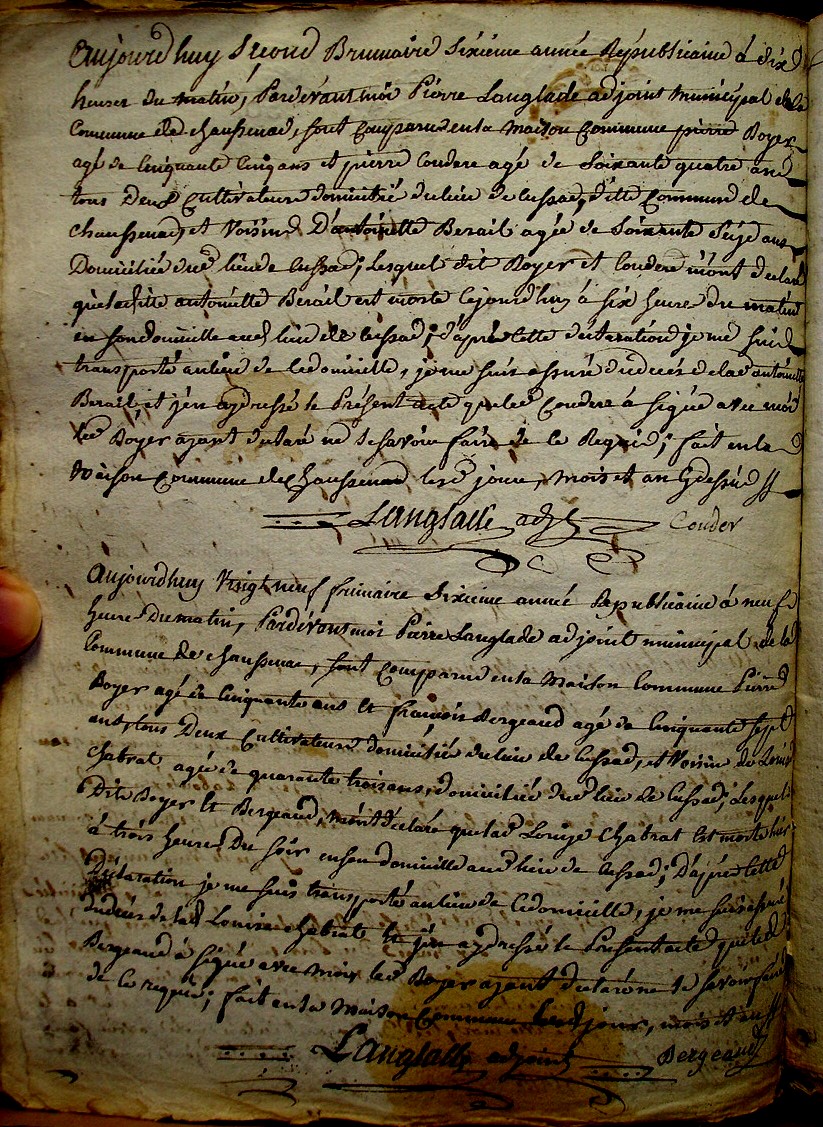 Aujourdhuy Second Brumaire Sixieme année Républicaine à dix
heures du matin, Pardevant moi Pierre Langlade adjoint municipal de la
Commune de chaussenac, sont comparus en la maison commune pierre Boyer
agé de Cinquante Cinq ans et pierre Couderc agé de Soixante quatre ans
tous Deux Cultivateurs domicilié du lieu de Cussac, ditte Commune de
chaussenac, et Voisins D'antoinette Berail agée de Soixante Seize ans
Domiciliée dud lieu de Cussac; Lesquel dit Boyer et Couderc m'ont declaré
que laditte antoinette Berail est morte cejourdhuy à six heures du matin
en son domicille aud lieu de Cussac; d'après cette déclaration je me suis
transporté au lieu de ce domicille, je me suis assuré du decés de lad antoinette
Berail, et j'en ay dressé le Présent acte que led Couderc à Signé avec moi
led Boyer ayant déclaré ne Scavoir faire de ce Requis; fait en la
maison Commune de Chaussenac lesd jour, mois et an Cydessus
Langlade adjt Couder
Aujourdhuy Vingt neuf frimaire Sixieme année Républicaine à neuf
heures Du matin, Pardevant moi Pierre Langlade adjoint municipal de la
Commune de chaussenac, sont comparus en la Maison Commune Pierre
Boyer agé de Cinquante ans et françois Bergeaud agé de Cinquante Sept
ans, tous Deux Cultivateurs domicilié du lieu de Cussac, et Voisin de Louise
Chabrat agée de quarante trois ans, domiciliée dud lieu de Cussac; Lesquel
Dits Boyer et Bergeaud, m'ont déclaré que lad Louise Chabrat est morte hier
à trois heures Du soir en son domicille aud lieu de Cussac; D'après cette
Déclaration je me suis transporté au lieu de ce domicille, je me suis assuré
du decés de lad Louise Chabrat et j'en ay dressé le Présent acte que led
Bergeaud à signé avec moi led Boyer ayant declaré ne le scavoir faire
de ce requis; fait en la Maison Commune lesd jour, mois et an
Langlade adjoint Bergeaud